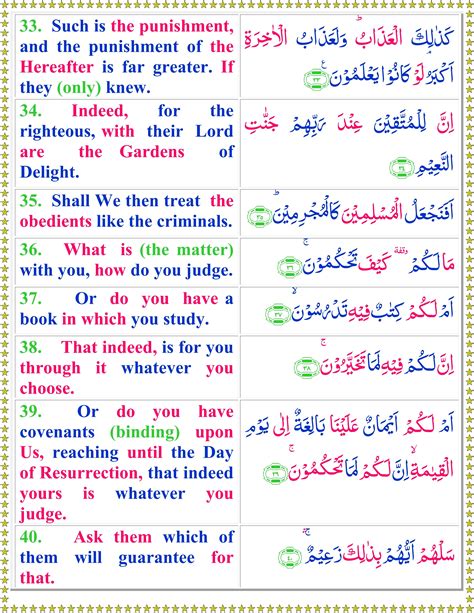 33. Such is the punishment,
and the punishment of the
Hereafter is far greater. If
they (only) knew.
كَذٰلِكَ الْعَذَابُ ؕ وَلَعَذَابُ الْاٰخِرَةِ
اَكْبَرُ ۘ لَوْ كَانُوْا يَعْلَمُوْنَ ۧ ٣٣
34. Indeed, for the
righteous, with their Lord
are the Gardens of
Delight.
اِنَّ لِلْمُتَّقِيْنَ عِنْدَ رَبِّهِمْ جَنّٰتِ
النَّعِيْمِ ٣٤
35. Shall We then treat the
obedients like the criminals.
اَفَنَجْعَلُ الْمُسْلِمِيْنَ كَالْمُجْرِمِيْنَ ؕ ٣٥
36. What is (the matter)
with you, how do you judge.
مَا لَكُمْ ٙ كَيْفَ تَحْكُمُوْنَ ۚ ٣٦
37. Or do you have a
book in which you study.
اَمْ لَكُمْ كِتٰبٌ فِيْهِ تَدْرُسُوْنَ ۙ ٣٧
38. That indeed, is for you
through it whatever you
choose.
اِنَّ لَكُمْ فِيْهِ لَمَا تَخَيَّرُوْنَ ۚ ٣٨
39. Or do you have
covenants (binding) upon
Us, reaching until the Day
of Resurrection, that indeed
yours is whatever you
judge.
اَمْ لَكُمْ اَيْمَانٌ عَلَيْنَا بَالِغَةٌ اِلٰى يَوْمِ
الْقِيٰمَةِ ۙ اِنَّ لَكُمْ لَمَا تَحْكُمُوْنَ ۚ ٣٩
40. Ask them which of
them will guarantee for
that.
سَلْهُمْ اَيُّهُمْ بِذٰلِكَ زَعِيْمٌ ۚ ٤٠